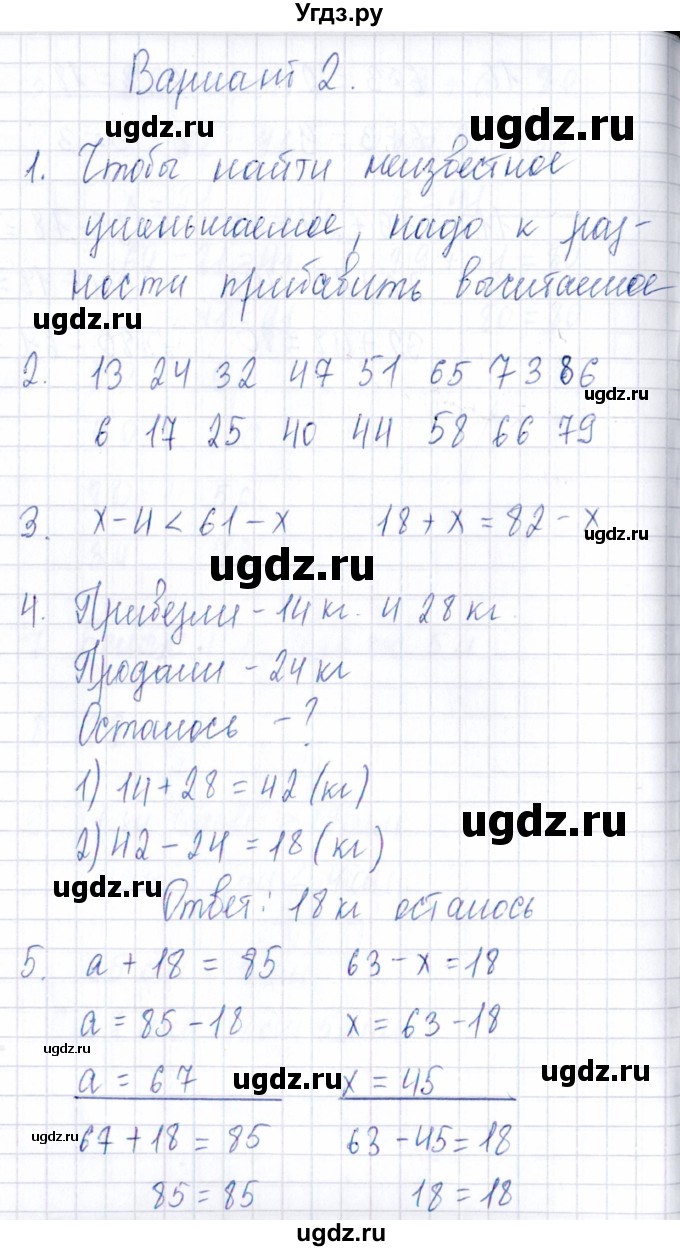 Угдз.ру
Вариант 2.
ugdz.ru
ugdz.ru
1. Чтобы найти неизвестное
уменьшаемое, надо к раз-
ности прибавить вычитаемое
ugdz.ru
2. 13 24 32 47 51 65 73 86
ugdz.ru
6 17 25 40 44 58 66 79
3. х - 4 < 61 - х 18 + х = 82 - х
ugdz.ru
ugdz.ru
4. Привезли - 14 кг. и 28 кг.
Продали - 24 кг
Осталось - ?
1) 14 + 28 = 42 (кг)
ugdz.ru
2) 42 - 24 = 18 (кг)
ugdz.ru
Ответ: 18 кг осталось
5. а + 18 = 85 63 - х = 18
а = 85 - 18 х = 63 - 18
ugdz.ru
а = 67 х = 45
ugdz.ru
ugdz.ru
ugdz.ru
67 + 18 = 85 63 - 45 = 18
85 = 85 18 = 18
ugdz.ru